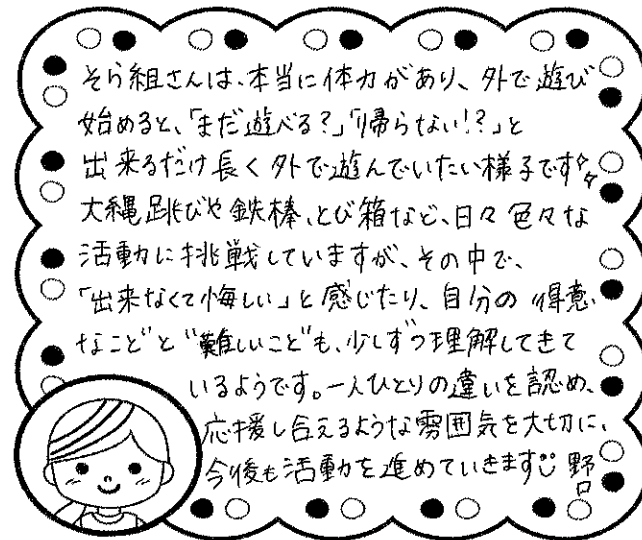 そら組さんは、本当に体力があり、外で遊び
始めると、「まだ遊べる?」「帰らない!?」と
出来るだけ長く外で遊んでいたい様子です
大縄跳びや鉄棒、とび箱など、日々色々な
活動に挑戦していますが、その中で、
「出来なくて悔しい」と感じたり、自分の"得意
なこと"と"難しいこと"も、少しずつ理解してきて
いるようです。一人ひとりの違いを認め、
応援し合えるような雰囲気を大切に、
今後も活動を進めていきます 野口